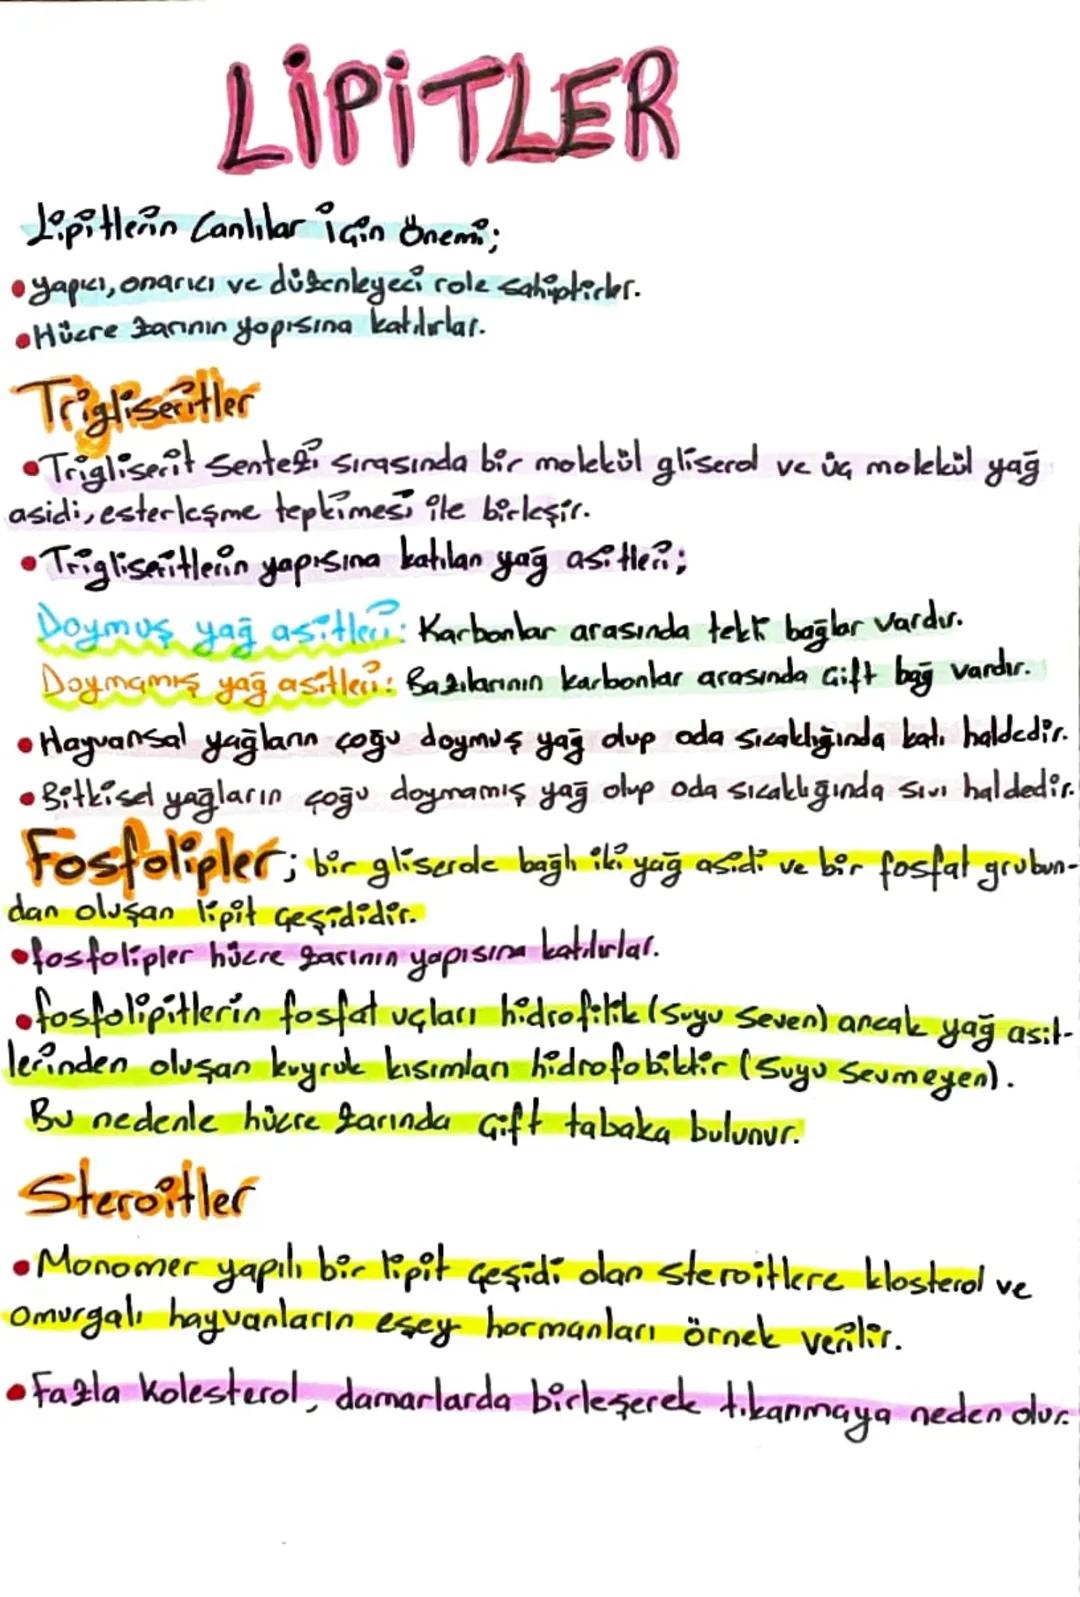 LİPİTLER
Lipitlerin Canlılar için Önemi;
• yapıcı, onarıcı ve düzenleyeci role sahiptirler.
• Hücre zarının yapısına katılırlar.
Trigliseritler
• Trigliserit Sentezi sırasında bir molekül gliserol ve üç molekül yağ
asidi, esterleşme tepkimesi ile birleşir.
• Trigliseritlerin yapısına katılan yağ asitleri;
Doymuş yağ asitleri: Karbonlar arasında tekli bağlar vardır.
Doymamış yağ asitleri: Bazılarının karbonlar arasında çift bağ vardır.
• Hayvansal yağların çoğu doymuş yağ olup oda sıcaklığında katı haldedir.
• Bitkisel yağların çoğu doymamış yağ olup oda sıcaklığında sıvı haldedir.
Fosfolipler; bir gliserole bağlı iki yağ asidi ve bir fosfat grubun-
dan oluşan lipit çeşididir.
• fosfolipler hücre zarının yapısına katılırlar.
• fosfolipitlerin fosfat uçları hidrofilik (Suyu Seven) ancak yağ asit-
lerinden oluşan kuyruk kısımları hidrofobiktir (Suyu Sevmeyen).
Bu nedenle hücre zarında çift tabaka bulunur.
Steroitler
• Monomer yapılı bir lipit çeşidi olan steroitlere klosterol ve
omurgalı hayvanların eşey hormanları örnek verilir.
• Fazla Kolesterol, damarlarda birleşerek tıkanmaya neden olur.